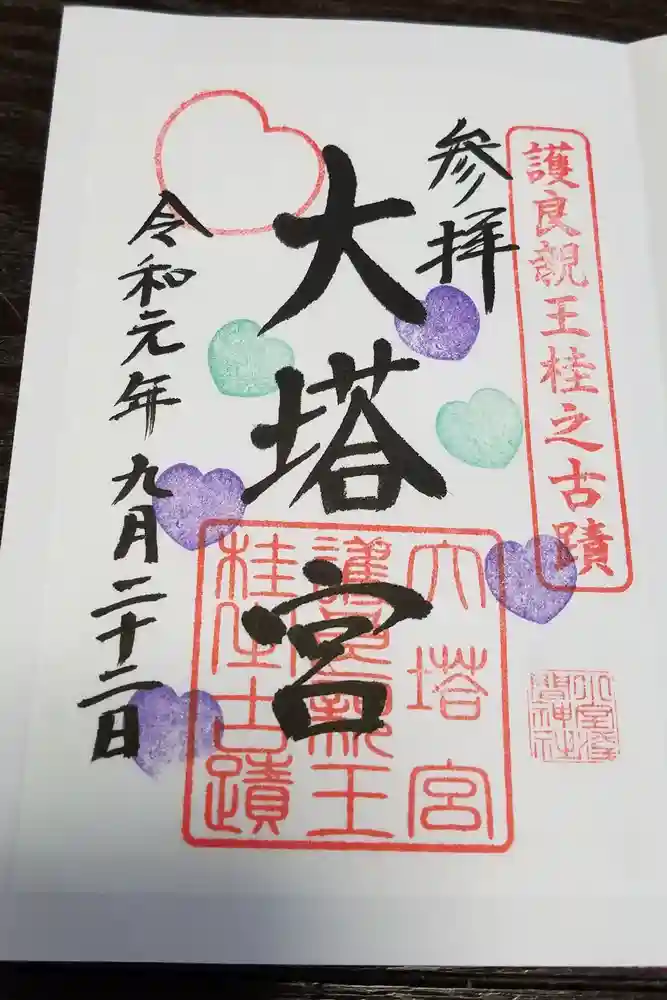 護良親王桂之古蹟
参拝
大塔宮
大塔宮
護良親王
桂之古蹟
令和元年九月二十二日